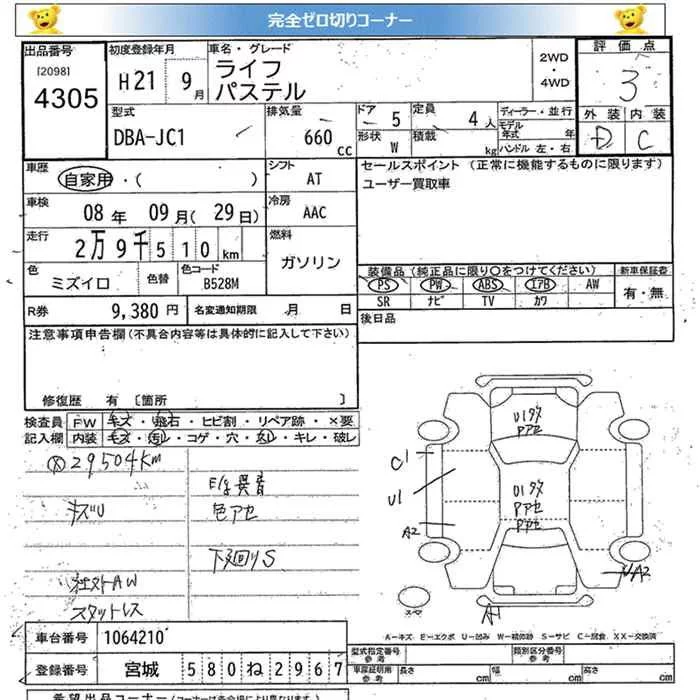 完全ゼロ切りコーナー
出品番号
[2098]
4305
初度登録年月
H21 9月
車名・グレード
ライフ
パステル
2WD
・
4WD
評価点
3
外装 内装
D C
型式
DBA-JC1
排気量
660 cc
ドア 5
形状 W
定員 4人
積載 kg
ディーラー・並行
モデル年式 年
ハンドル 左・右
車歴
自家用・( )
シフト
AT
セールスポイント (正常に機能するものに限ります)
ユーザー買取車
車検
08年 09月(29日)
冷房
AAC
走行
2万9千510km
燃料
ガソリン
色
ミズイロ
色替
色コード
B528M
装備品(純正品に限り〇をつけてください)
PS PW ABS エアB AW
SR ナビ TV カワ
新車保証書
有・無
R券 9,380円
名変通知期限 月 日
後日品
注意事項申告欄(不具合内容等は具体的に記入して下さい)
修復歴 有 [箇所 ]
検査員記入欄
FW キズ・飛石・ヒビ割・リペア跡・×要
内装 キズ・汚れ・コゲ・穴・スレ・キレ・破レ
29504km
キズU
E/g異音
色アセ
下廻りS
社外AW
スタットレス
U1タタ
Pアセ
C1
U1
A2
U1タタ
Pアセ
Pアセ
UA2
A1
スマ
A-キズ E-エクボ U-凹み W-補修跡 S-サビ C-腐食 XX-交換済
車台番号 1064210
登録番号 宮城 580ね2967
型式指定番号
参考
類別区分番号
参考
車庫証明用
参考
長さ cm 幅 cm 高さ cm
希望出品コーナー